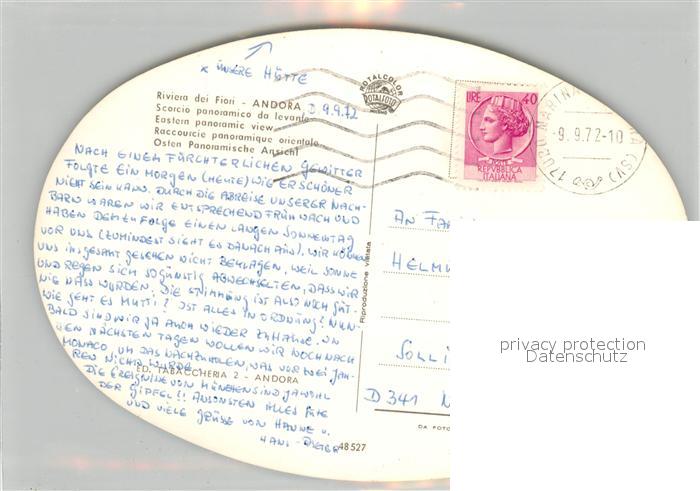 x UNSERE HÜTTE
Riviera dei Fiori - ANDORA
Scorcio panoramico da levante
Eastern panoramic view
Raccourcie panoramique orientale
Osten Panoramische Ansicht
D 9.9.72
ROTALCOLOR
ROTALFOTO
LIRE 40
REPVBBLICA
ITALIANA
17020 MARINA
(SV)
9.9.72-10
NACH EINEM FÜRCHTERLICHEN GEWITTER
FOLGTE EIN MORGEN (HEUTE) WIE ER SCHÖNER
NICHT SEIN KANN. DURCH DIE ABREISE UNSERER NACH-
BARN WAREN WIR ENTSPRECHEND FRÜH WACH UND
HABEN DEMZUFOLGE EINEN LANGEN SONNENTAG
VOR UNS (ZUMINDEST SIEHT ES DANACH AUS). WIR KÖNNEN
UNS INSGESAMT GESEHEN NICHT BEKLAGEN, WEIL SONNE
UND REGEN SICH SO GÜNSTIG ABWECHSELTEN, DASS WIR
NIE NASS WURDEN. DIE STIMMUNG IST ALSO NOCH GUT.
WIE GEHT ES MUTTI? IST ALLES IN ORDNUNG? NUN-
BALD SIND WIR JA AUCH WIEDER ZUHAUSE. IN
DEN NÄCHSTEN TAGEN WOLLEN WIR NOCH NACH
MONACO, UM DAS NACHZUHOLEN, WAS VOR ZWEI JAH-
REN NICHT WURDE.
ED. TABACCHERIA 2 - ANDORA
DIE EREIGNISSE VON MÜNCHEN SIND JAWOHL
DER GIPFEL!! ANSONSTEN ALLES GUTE
UND VIELE GRÜSSE VON HANNE U.
HANS-DIETER
48527
Riproduzione vietata
AN
HELMU
SOLLI
D 341
DA FOTO
privacy protection
Datenschutz